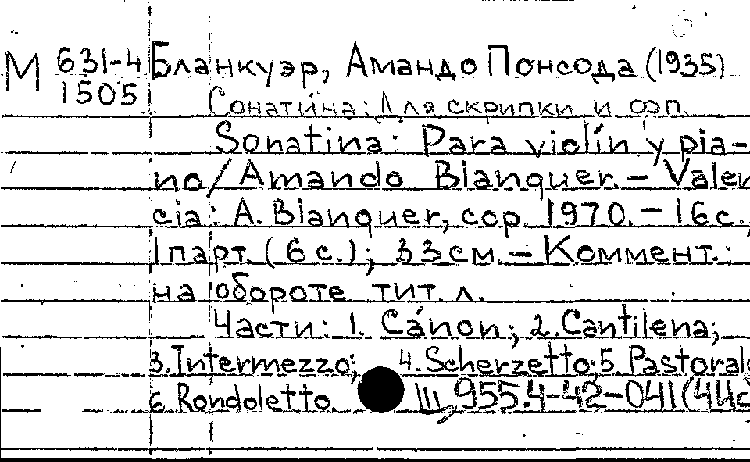 М 631-4 Бланкуэр, Амандо Понсода (1935)
1505 Сонатина: Для скрипки и фп.
Sonatina: Para violín y pia-
no/Amando Blanquer. – Valen
cia: A. Blanquer, cop. 1970. – 16 с.,
1 парт. (6 с.); 33 см. – Коммент.:
на обороте тит. л.
Части: 1. Cánon; 2. Cantilena;
3. Intermezzo; 4. Scherzetto. 5. Pastoral
6. Rondoletto. 955.4-42-041(44